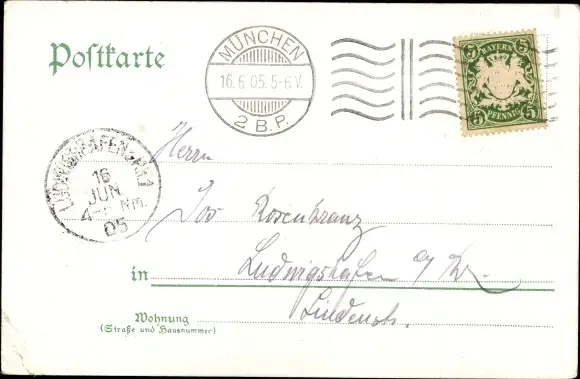 Postkarte
MÜNCHEN
16.6.05.5-6 V.
2 B.P.
BAYERN
5 5
5 5
PFENNIG
LUDWIGSHAFEN
16
JUN
4- NM.
05
Herrn
Jos Rosenkranz
in Ludwigshafen a/ Rh.
Lindenstr.
Wohnung
(Straße und Hausnummer)